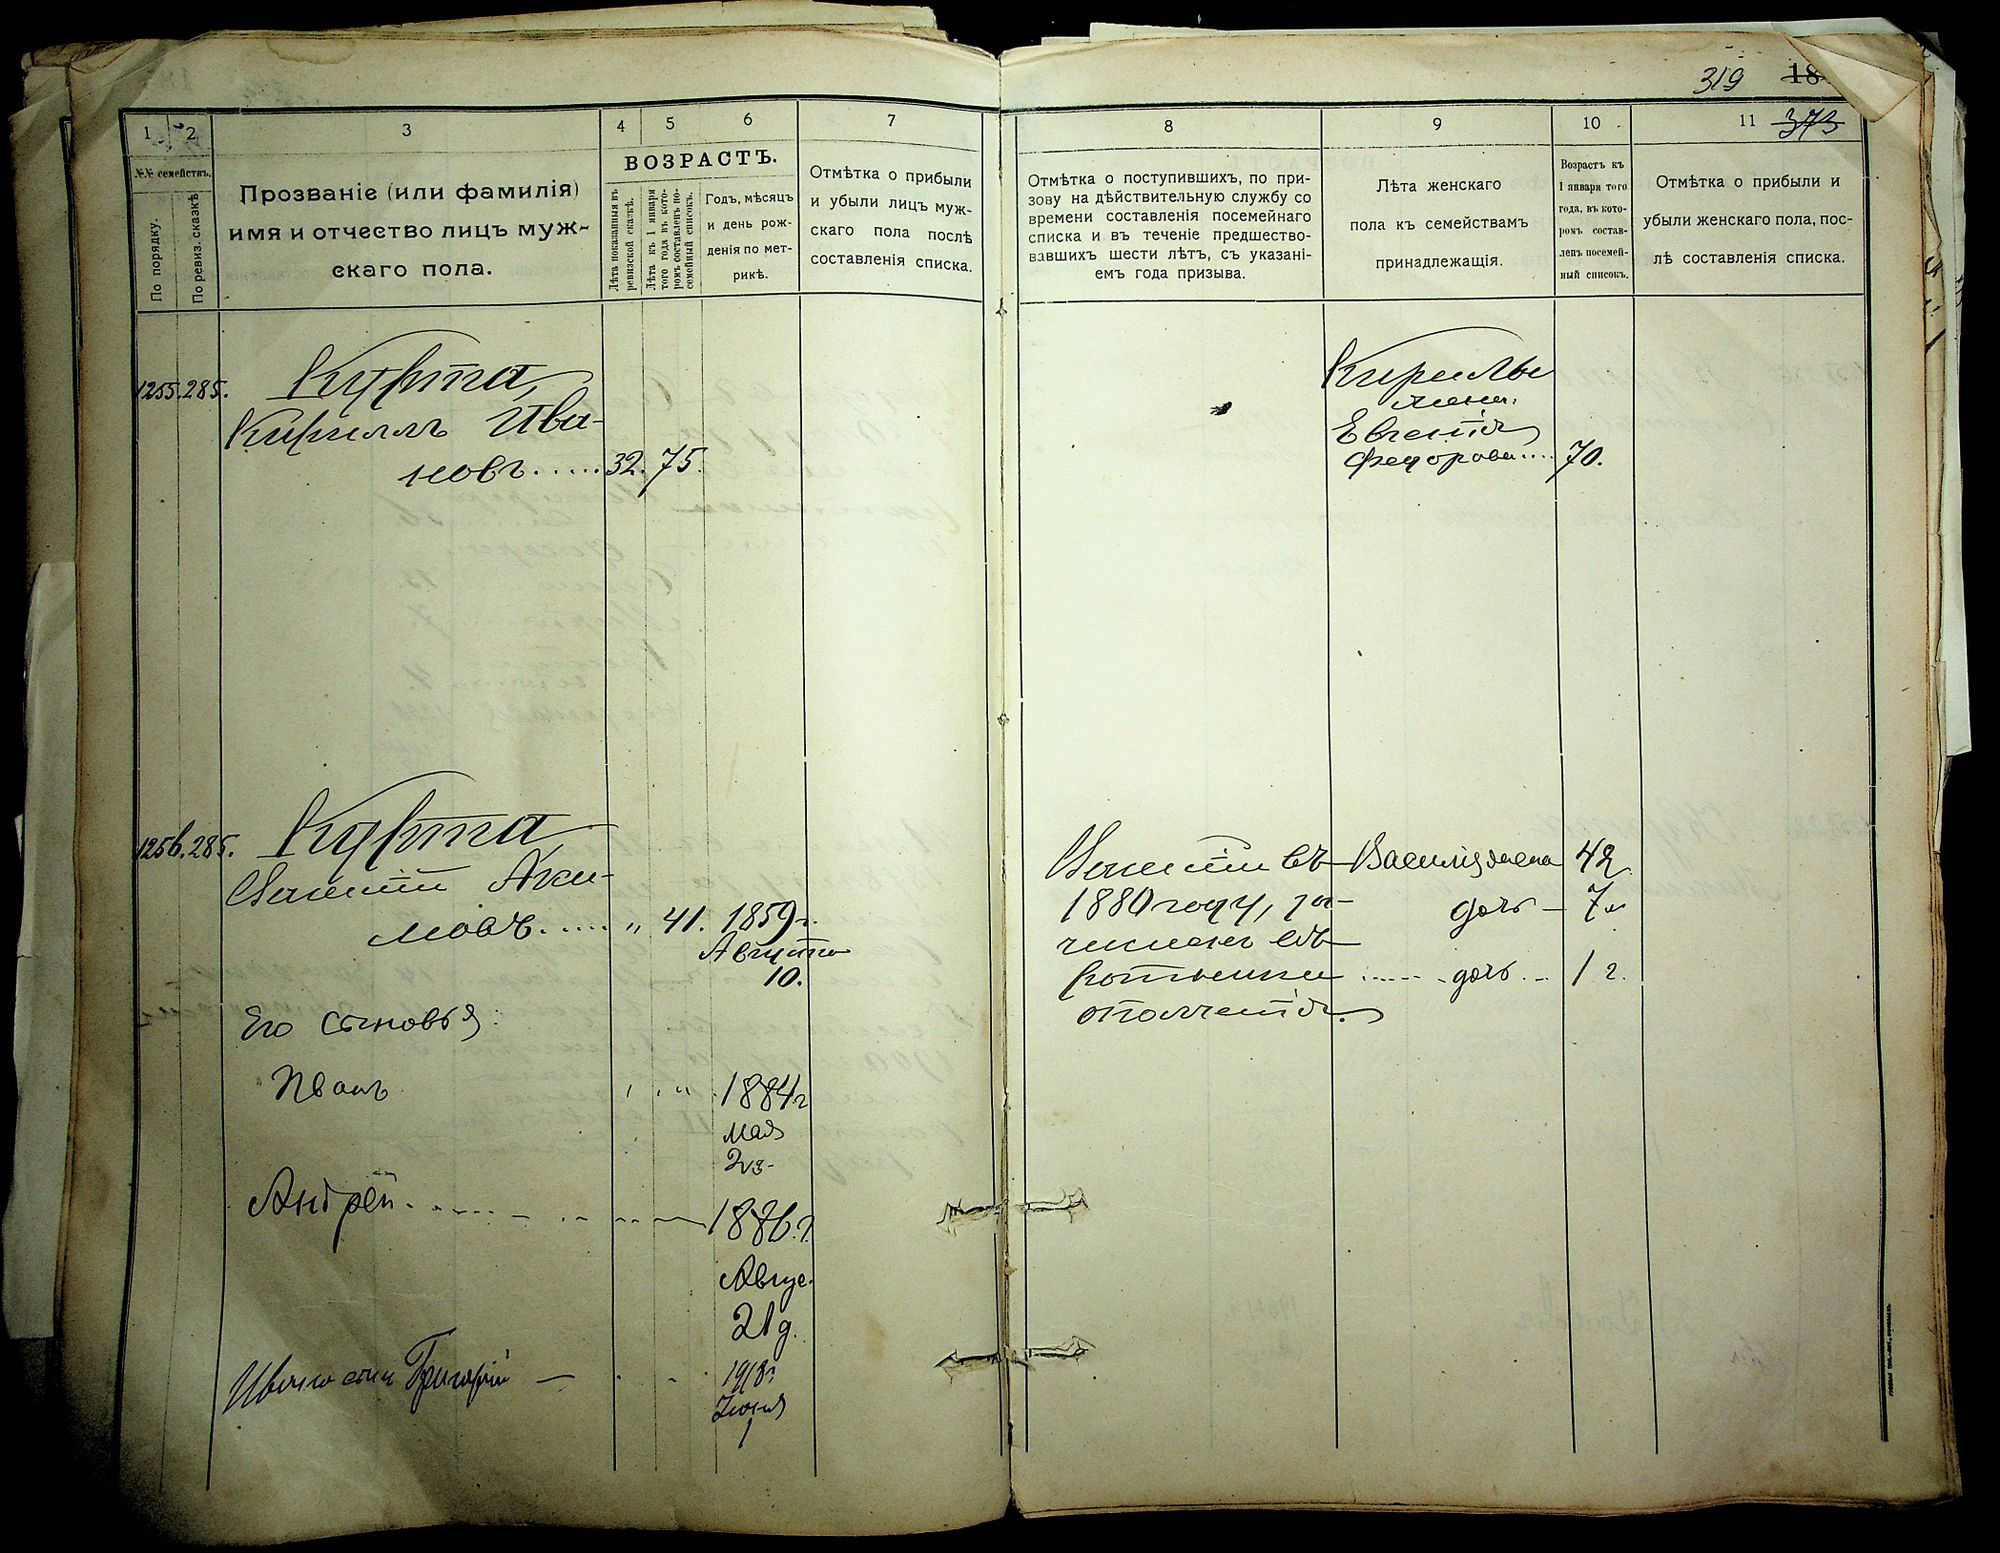 319
373
1
2
3
4
5
6
7
№№ семействъ.
По порядку.
По ревиз. сказкѣ
Прозваніе (или фамилія)
имя и отчество лицъ муж-
скаго пола.
ВОЗРАСТЪ.
Лѣта показанныя въ
ревизской сказкѣ.
Лѣта къ 1 января
того года въ кото-
ромъ составленъ по-
семейный списокъ.
Годъ, мѣсяцъ
и день рож-
денія по мет-
рикѣ.
Отмѣтка о прибыли
и убыли лицъ муж-
скаго пола послѣ
составленія списка.
8
9
10
11
Отмѣтка о поступившихъ, по при-
зову на дѣйствительную службу со
времени составленія посемейнаго
списка и въ теченіе предшество-
вавшихъ шести лѣтъ, съ указані-
емъ года призыва.
Лѣта женскаго
пола къ семействамъ
принадлежащія.
Возрастъ къ
1 января того
года, въ кото-
ромъ состав-
ленъ посемей-
ный списокъ.
Отмѣтка о прибыли и
убыли женскаго пола, пос-
лѣ составленія списка.
1255. 285.
Кириллъ Ива-
новъ..... 32. 75.
Кириллы
жена.
Евгенія
Федорова.... 70.
1256. 285.
Аки-
мовъ..... „ 41. 1859 г.
Августа
10.
въ
1880 году, за-
численъ въ
ратники
ополченія.
42
дочь — 7
дочь — 1 г.
Его сыновья:
Иванъ „ 1884 г
мая
Андрей 1886. г.
Авгус.
21 д.
Ивана сынъ Григорій —
Іюня
1